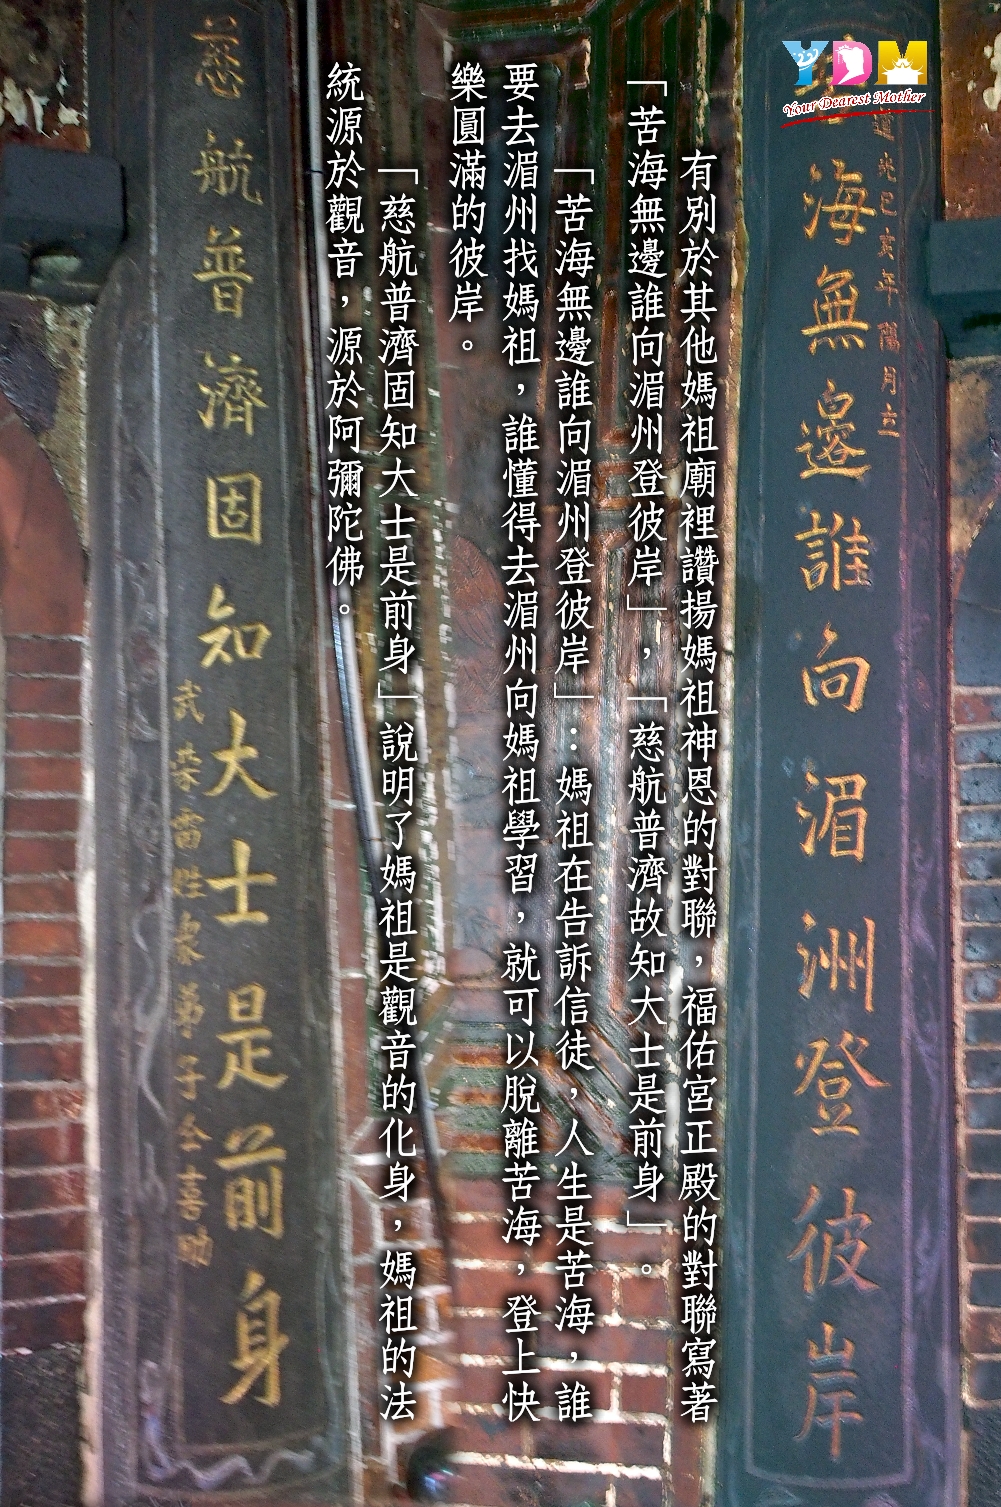 YDM
Your Dearest Mother
苦海無邊誰向湄洲登彼岸
道光己亥年陽月立
有別於其他媽祖廟裡讚揚媽祖神恩的對聯，福佑宮正殿的對聯寫著
「苦海無邊誰向湄州登彼岸」，「慈航普濟故知大士是前身」。
「苦海無邊誰向湄州登彼岸」：媽祖在告訴信徒，人生是苦海，誰
要去湄州找媽祖，誰懂得去湄州向媽祖學習，就可以脫離苦海，登上快
樂圓滿的彼岸。
「慈航普濟固知大士是前身」說明了媽祖是觀音的化身，媽祖的法
統源於觀音，源於阿彌陀佛。
慈航普濟固知大士是前身
武榮雷姓衆弟子仝喜助